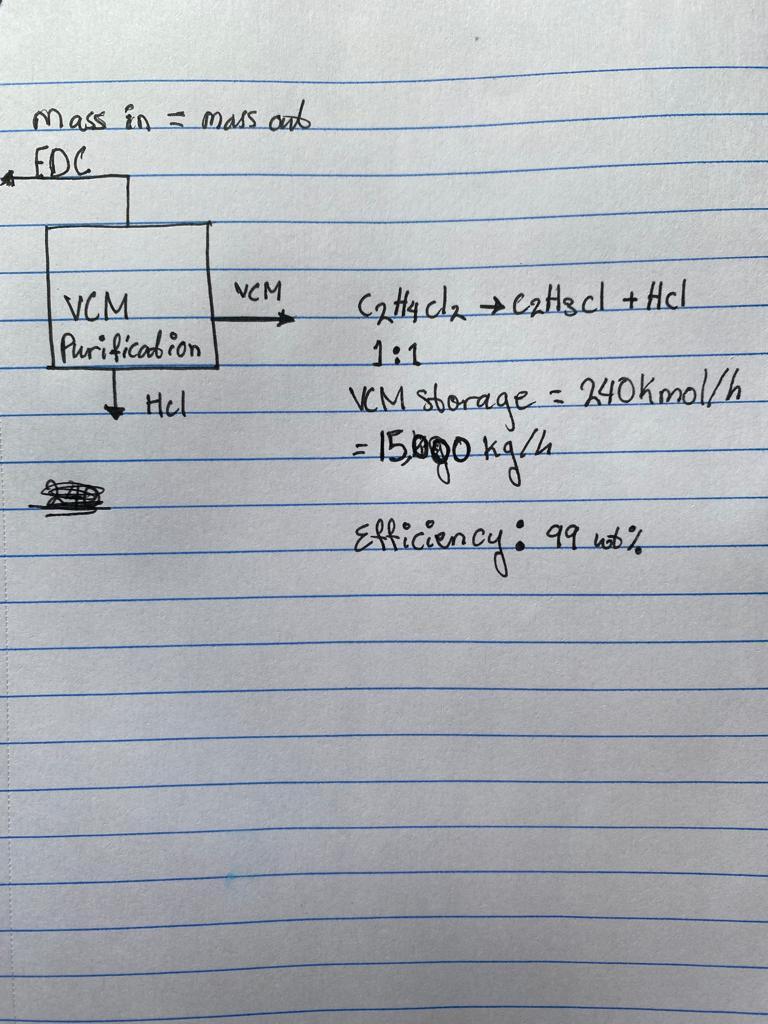 Mass in = mass out
EDC
VCM
Purification
VCM
Hcl
C₂H₄cl₂ → C₂H₃cl + Hcl
1:1
VCM storage = 240kmol/h
= 15,000 kg/h
Efficiency: 99 wt%